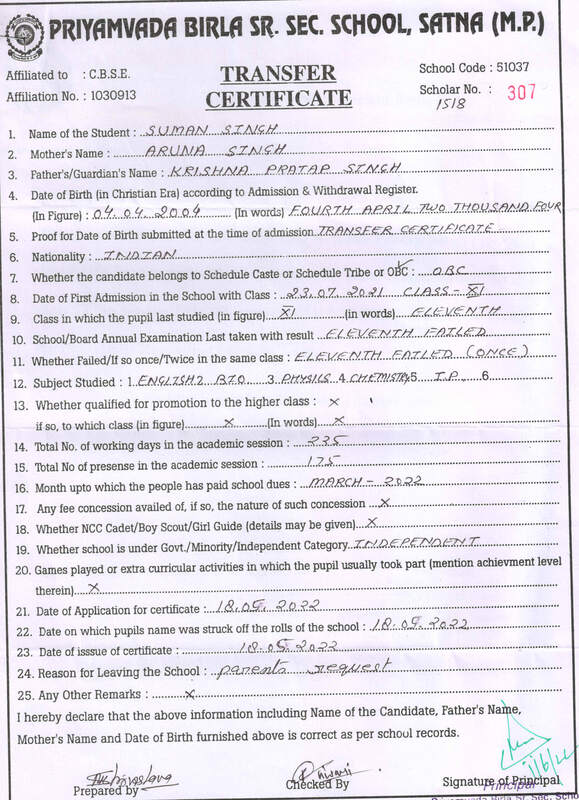 PRIYAMVADA BIRLA SR. SEC. SCHOOL, SATNA (M.P.)
Affiliated to : C.B.S.E.
Affiliation No. : 1030913
TRANSFER
CERTIFICATE
School Code : 51037
Scholar No. : 307
1518
1. Name of the Student : SUMAN SINGH
2. Mother's Name : ARUNA SINGH
3. Father's/Guardian's Name : KRISHNA PRATAP SINGH
4. Date of Birth (in Christian Era) according to Admission & Withdrawal Register.
(In Figure) : 04.04.2004 (In words) FOURTH APRIL TWO THOUSAND FOUR
5. Proof for Date of Birth submitted at the time of admission TRANSFER CERTIFICATE
6. Nationality : INDIAN
7. Whether the candidate belongs to Schedule Caste or Schedule Tribe or OBC : OBC
8. Date of First Admission in the School with Class : 23.07.2021 CLASS - XI
9. Class in which the pupil last studied (in figure) XI (in words) ELEVENTH
10. School/Board Annual Examination Last taken with result ELEVENTH FAILED
11. Whether Failed/If so once/Twice in the same class : ELEVENTH FAILED (ONCE)
12. Subject Studied : 1. ENGLISH 2. BIO 3. PHYSICS 4. CHEMISTRY 5. I.P. 6.
13. Whether qualified for promotion to the higher class : X
if so, to which class (in figure) X (In words) X
14. Total No. of working days in the academic session : 235
15. Total No of presense in the academic session : 175
16. Month upto which the people has paid school dues : MARCH - 2022
17. Any fee concession availed of, if so, the nature of such concession X
18. Whether NCC Cadet/Boy Scout/Girl Guide (details may be given) X
19. Whether school is under Govt./Minority/Independent Category INDEPENDENT
20. Games played or extra curricular activities in which the pupil usually took part (mention achievment level
therein) X
21. Date of Application for certificate : 18.05.2022
22. Date on which pupils name was struck off the rolls of the school : 18.05.2022
23. Date of isssue of certificate : 18.05.2022
24. Reason for Leaving the School : parents request
25. Any Other Remarks : X
I hereby declare that the above information including Name of the Candidate, Father's Name,
Mother's Name and Date of Birth furnished above is correct as per school records.
Prepared by Checked By Signature of Principal
Principal
Priyamvada Birla Sr. Sec. Scho